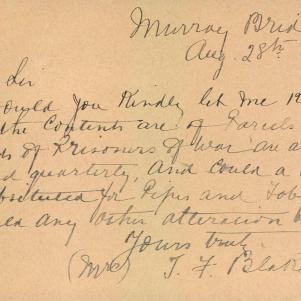 Murray Brid
Aug. 28th
Sir
ould you Kindly let me
the Contents are of Parcels
ds of Prisoners of War are a
d quarterly, and could a
bstituted for Pipes and Tob
ld any other alteration b
Yours truly
(Mrs) T. F. Blake